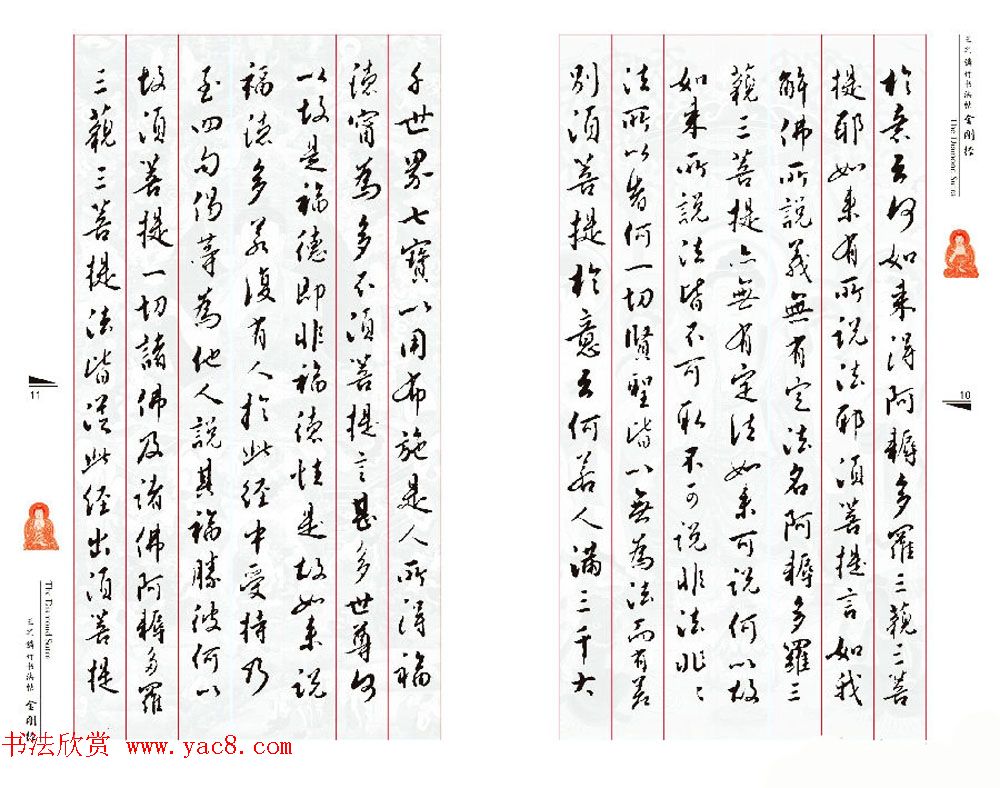 行书法帖 金刚经
The Diamond Sutra
10
於意云何如来得阿耨多羅三藐三菩
提耶如来有所說法耶須菩提言如我
解佛所說義無有定法名阿耨多羅三
藐三菩提亦無有定法如来可說何以故
如来所說法皆不可取不可說非法非〻
法所以者何一切賢聖皆以無為法而有差
別須菩提於意云何若人滿三千大
千世界七寶以用布施是人所得福
德寧為多不須菩提言甚多世尊何
以故是福德即非福德性是故如来說
福德多若復有人於此經中受持乃
至四句偈等為他人說其福勝彼何以
故須菩提一切諸佛及諸佛阿耨多羅
三藐三菩提法皆從此經出須菩提
11
The Diamond Sutra
行书法帖 金刚经
书法欣赏 www.yac8.com